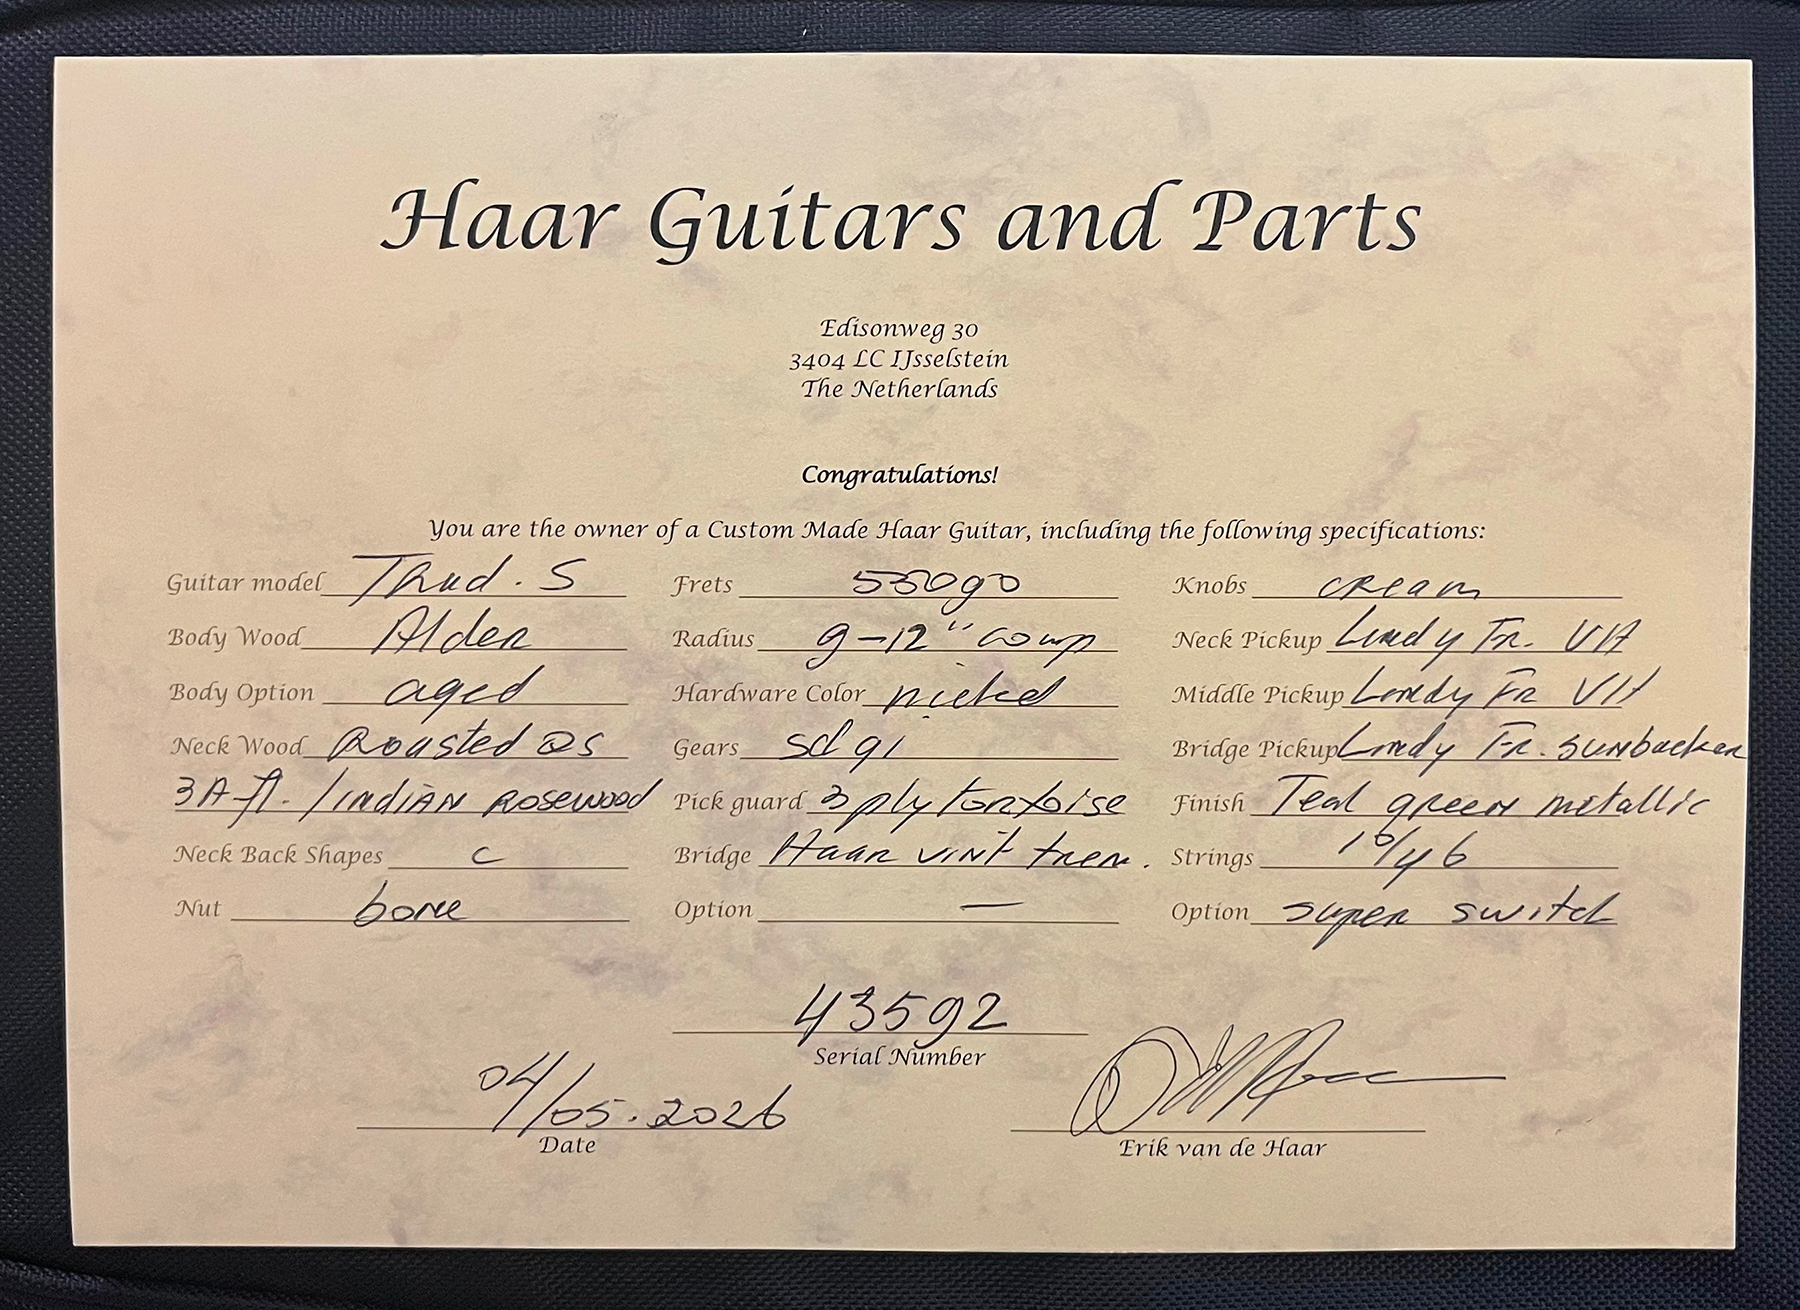 Haar Guitars and Parts
Edisonweg 30
3404 LC IJsselstein
The Netherlands
Congratulations!
You are the owner of a Custom Made Haar Guitar, including the following specifications:
Guitar model Trad. S
Body Wood Alder
Body Option aged
Neck Wood Roasted QS
3A fl. / indian Rosewood
Neck Back Shapes C
Nut bone
Frets 55090
Radius 9-12" comp
Hardware Color nickel
Gears sd 91
Pick guard 3 ply tortoise
Bridge Haar vint trem.
Option —
Knobs cream
Neck Pickup Lindy Fr. VH
Middle Pickup Lindy Fr VH
Bridge Pickup Lindy Fr. sunbucker
Finish Teal green metallic
Strings 10/46
Option super switch
43592
Serial Number
04/05.2026
Date
Erik van de Haar